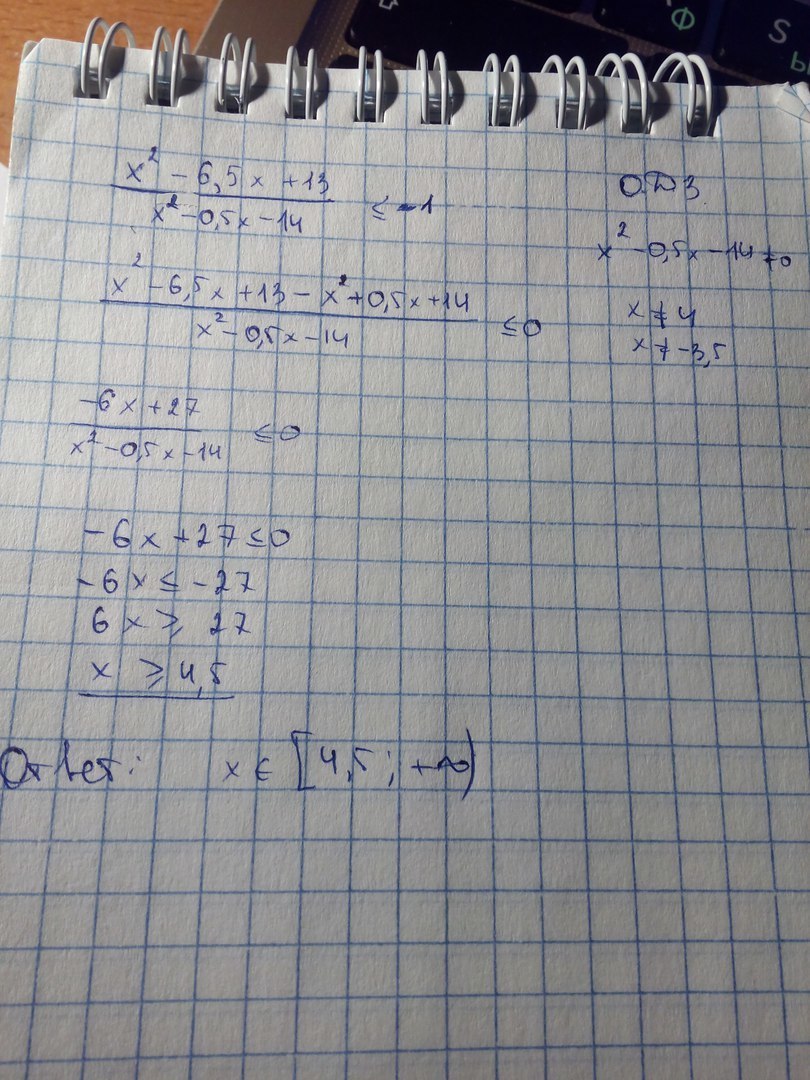 x² - 6,5x + 13 / x² - 0,5x - 14 ≤ -1
x² - 6,5x + 13 - x² + 0,5x + 14 / x² - 0,5x - 14 ≤ 0
-6x + 27 / x² - 0,5x - 14 ≤ 0
-6x + 27 ≤ 0
-6x ≤ -27
6x ≥ 27
x ≥ 4,5
Ответ: x ∈ [4,5; +∞)
ОДЗ
x² - 0,5x - 14 ≠ 0
x ≠ 4
x ≠ -3,5
Ф
S
Ы